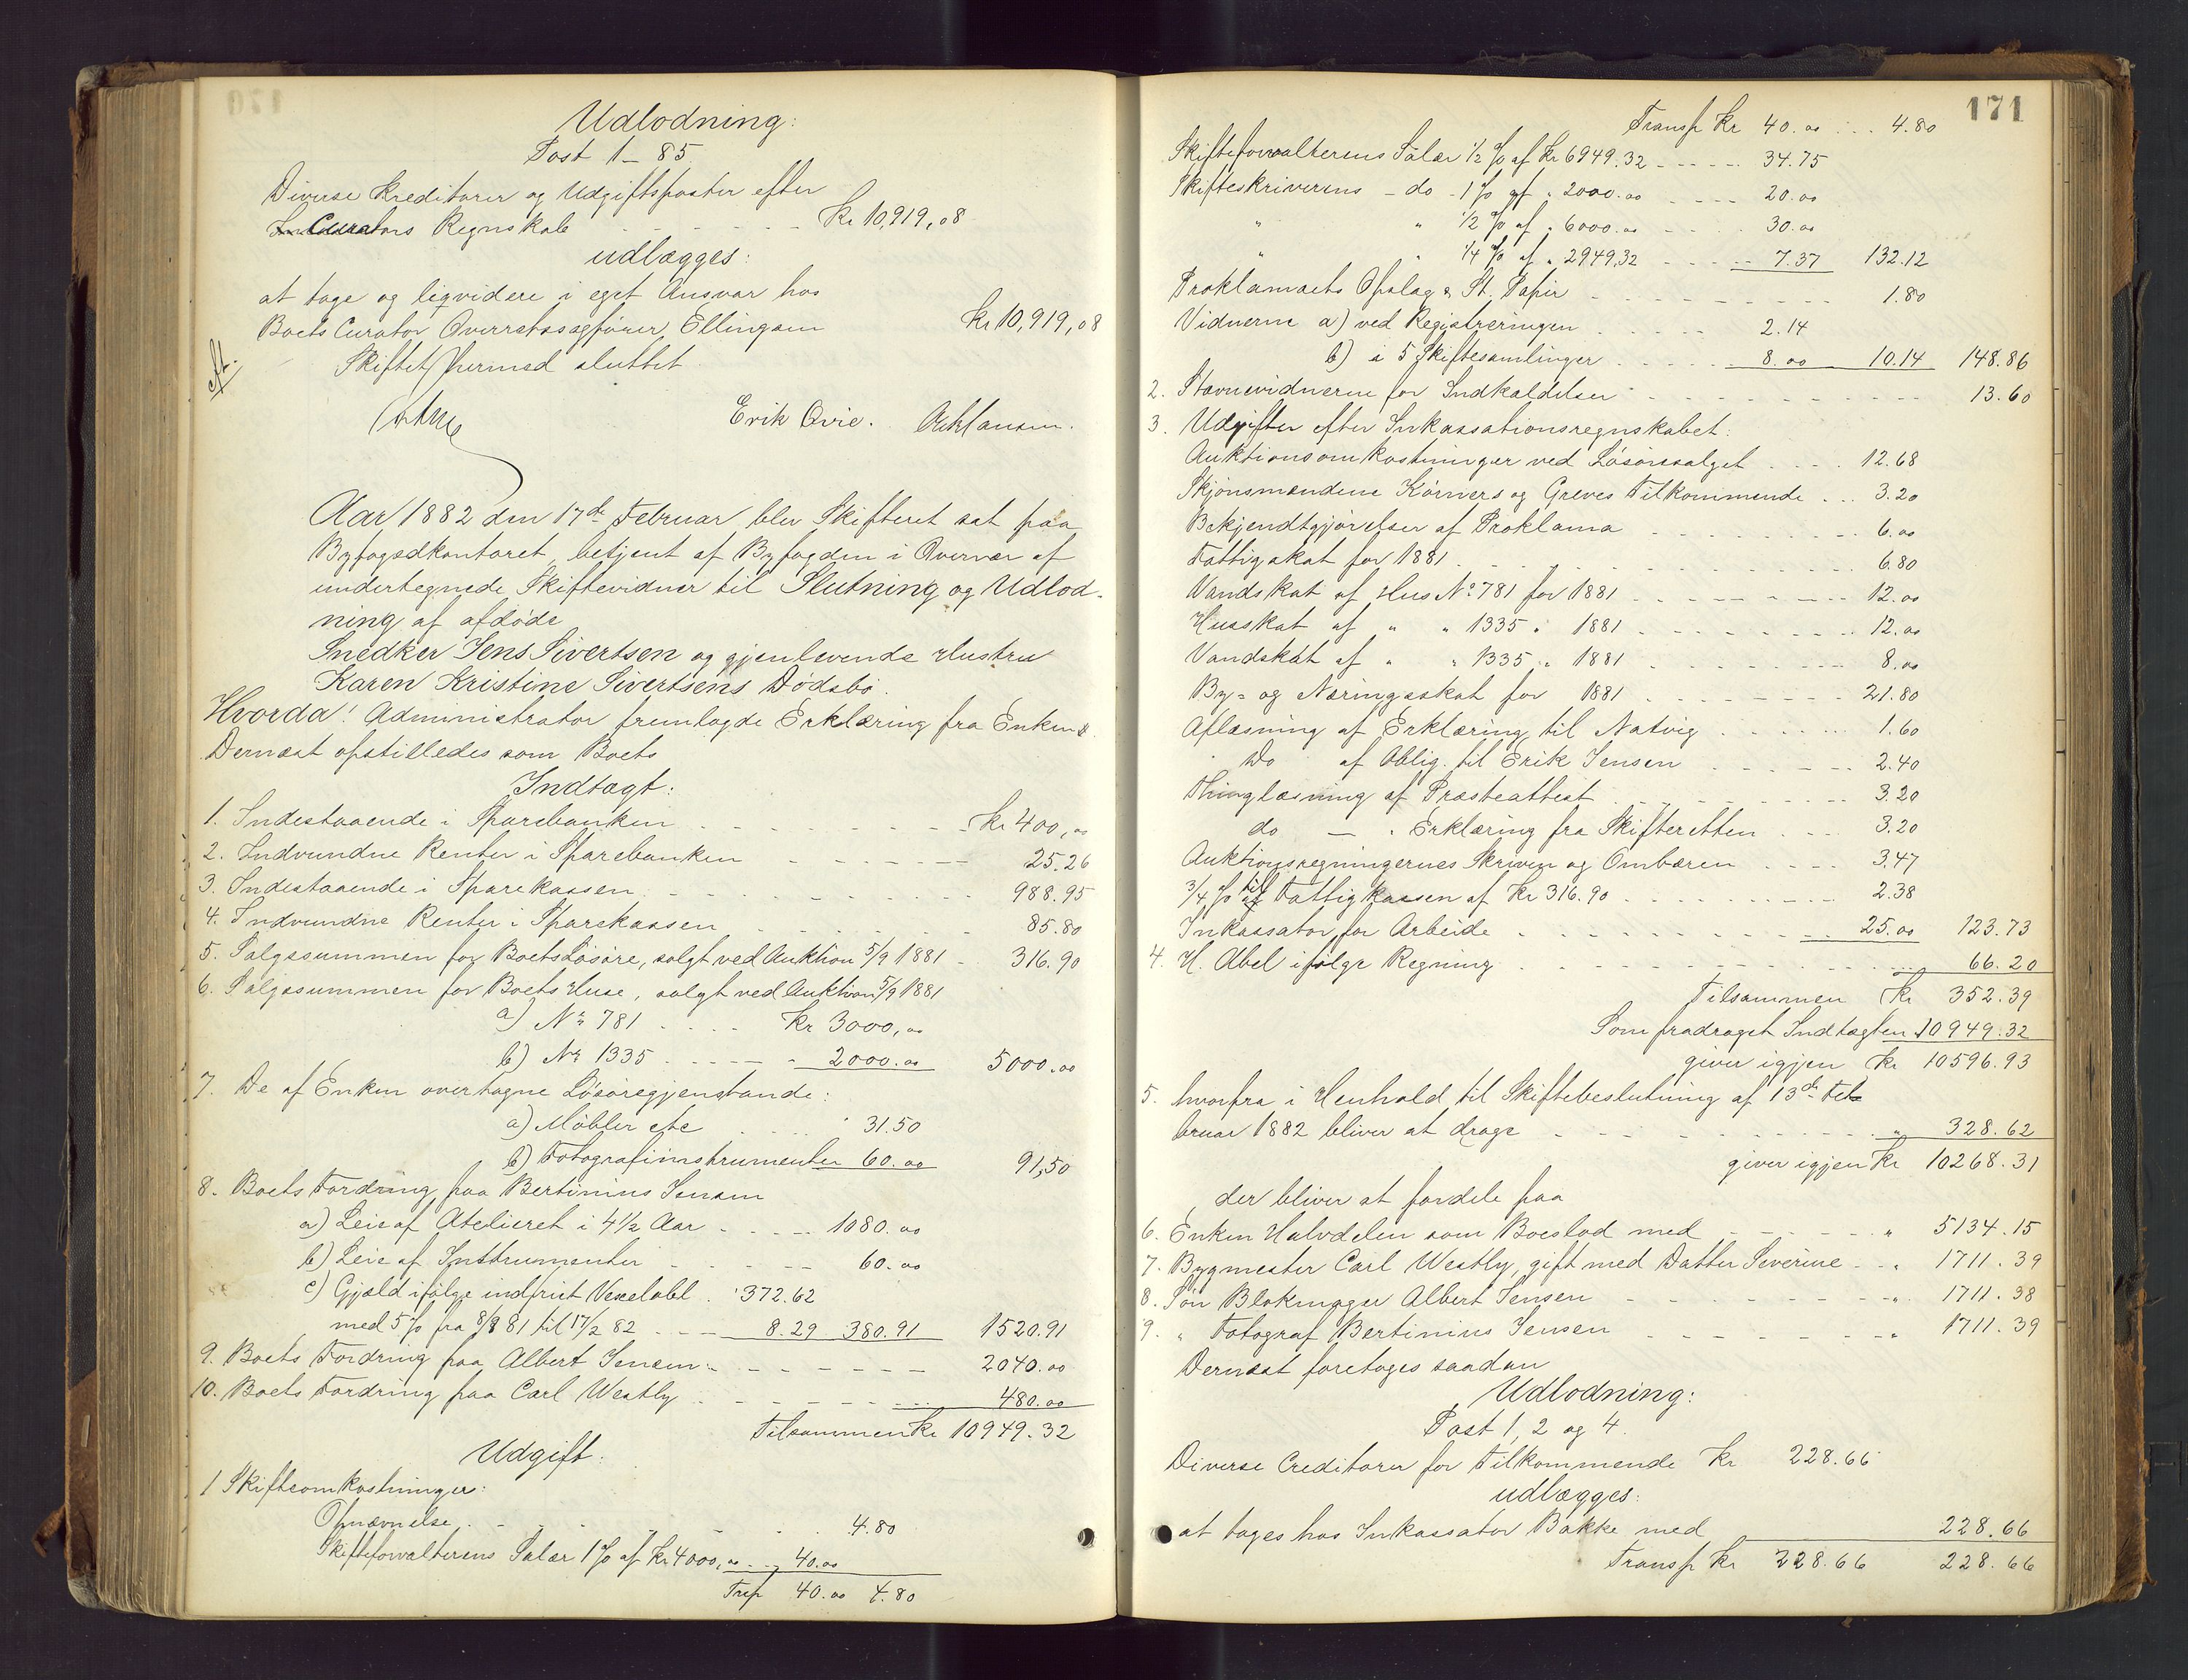 Udlodning:
Post 1 - 85.
Diverse Kreditorer og Udgiftsposter efter
Curators Regnskab - - - - - - Kr 10,919,08
udlægges:
at tage og liqvidere i eget Ansvar hos
Boets Curator Overretssagfører Ellingsen Kr 10,919,08
Skiftet hermed sluttet.
Erik Qvie.
Aar 1882 den 17de Februar blev Skifteret sat paa
Byfogedkontoret, betjent af Byfogden i Overvær af
undertegnede Skiftevidner til Slutning og Udlod-
ning af afdøde
Snedker Jens Sivertsen og gjenlevende Hustru
Karen Kristine Sivertsens Dødsbo.
Hvorda! Administrator fremlagde Erklæring fra Enken.
Dernæst opstilledes som Boets
Indtægt:
1. Indestaaende i Sparebanken - - - - Kr 400,00
2. Indvundne Renter i Sparebanken - - - - 25.26
3. Indestaaende i Sparekassen - - - - 988.95
4. Indvundne Renter i Sparekassen - - - - 85.80
5. Salgssummen for Boets Løsøre, solgt ved Auktion 5/9 1881 - 316.90
6. Salgssummen for Boets Huse, solgt ved Auktion 5/9 1881
a) No 781 - - - - Kr 3000,00
b) No 1335 - - - - 2000.00 5000.00
7. De af Enken overtagne Løsøregjenstande:
a) Møbler etc - - - 31.50
b) Fotografiinstrumenter 60.00 91,50
8. Boets Fordring paa Bertinius Jensen
a) Leie af Atelieret i 4 1/2 Aar - - - - 1080.00
b) Leie af Instrumenter - - - - 60.00
c) Gjæld ifølge indfriet Vexelobl. 372.62
med 5 % fra 8/9 81 til 17/2 82 - - - 8.29 380.91 1520.91
9. Boets Fordring paa Albert Jensen - - - - 2040.00
10. Boets Fordring paa Carl Westly - - - - 480.00
Tilsammen Kr 10949.32
Udgift:
1 Skifteomkostninger:
Opnævnelse - - - - 4.80
Skifteforvalterens Salær 1 % af Kr 4000,00 - - 40.00
Trsp 40.00 4.80
171
Transp Kr 40.00 - - - 4.80
Skifteforvalterens Salær 1/2 % af Kr 6949.32 - - - - 34.75
Skifteskriverens - do - 1 % af " 2000.00 - - - - 20.00
" " 1/2 % af " 6000.00 - - - - 30.00
" " 1/4 % af " 2949,32 - - - - 7.37 132.12
Proklamaets Opslag & St. Papir - - - - 1.80
Vidnerne a) ved Registreringen - - - - 2.14
b) i 5 Skiftesamlinger - - - - 8.00 10.14 148.86
2. Stævnevidnerne for Indkaldelser - - - - 13.60
3. Udgifter efter Inkassationsregnskabet:
Auktionsomkostninger ved Løsøresalget - - - - 12.68
Skjønsmændene Körners og Greves Tilkommende - - - 3.20
Bekjendtgjørelser af Proklama - - - - 6.00
Fattigskat for 1881 - - - - 6.80
Vandskat af Hus No 781 for 1881 - - - - 12.00
Husskat af " " 1335 " 1881 - - - - 12.00
Vandskat af " " 1335 " 1881 - - - - 8.00
By- og Næringsskat for 1881 - - - - 21.80
Aflæsning af Erklæring til Natvig - - - - 1.60
Do af Oblig. til Erik Jensen - - - - 2.40
Thinglæsning af Præsteattest - - - - 3.20
do — " Erklæring fra Skifteretten - - - 3.20
Auktionsregningernes Skriven og Ombæren - - - - 3.47
3/4 % til Fattigkassen af Kr 316.90 - - - - 2.38
Inkassator for Arbeide - - - - 25.00 123.73
4. H. Abel ifølge Regning - - - - 66.20
Tilsammen Kr 352.39
Som fradraget Indtægten 10949.32
giver igjen Kr 10596.93
5. hvorfra i Henhold til Skiftebeslutning af 13de Feb
bruar 1882 bliver at drage - - - - " 328.62
giver igjen Kr 10268.31
der bliver at fordele paa
6. Enken Halvdelen som Boeslod med - - - - " 5134.15
7. Bygmester Carl Westly, gift med Datter Severine - - " 1711.39
8. Søn Blokmager Albert Jensen - - - - " 1711.38
9. " Fotograf Bertinius Jensen - - - - " 1711.39
Dernæst foretoges saadan
Udlodning:
Post 1, 2 og 4.
Diverse Creditorer for Tilkommende Kr 228.66
udlægges:
at tages hos Inkassator Bakke med 228.66
Transp Kr 228.66 228.66